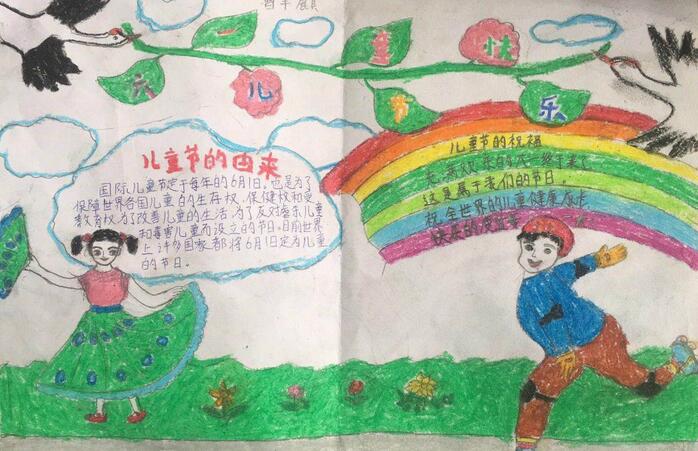 六一儿童节快乐
儿童节的由来
国际儿童节定于每年的6月1日。也是为了
保障世界各国儿童的生存权、保健权和受
教育权。为了改善儿童的生活,为了反对虐杀儿童
和毒害儿童而设立的节日。目前世界
上许多国家都将6月1日定为儿童
的节日。
儿童节的祝福
充满欢乐的六一终于来了
这是属于我们的节日。
祝全世界的儿童健康成长
快乐的度过